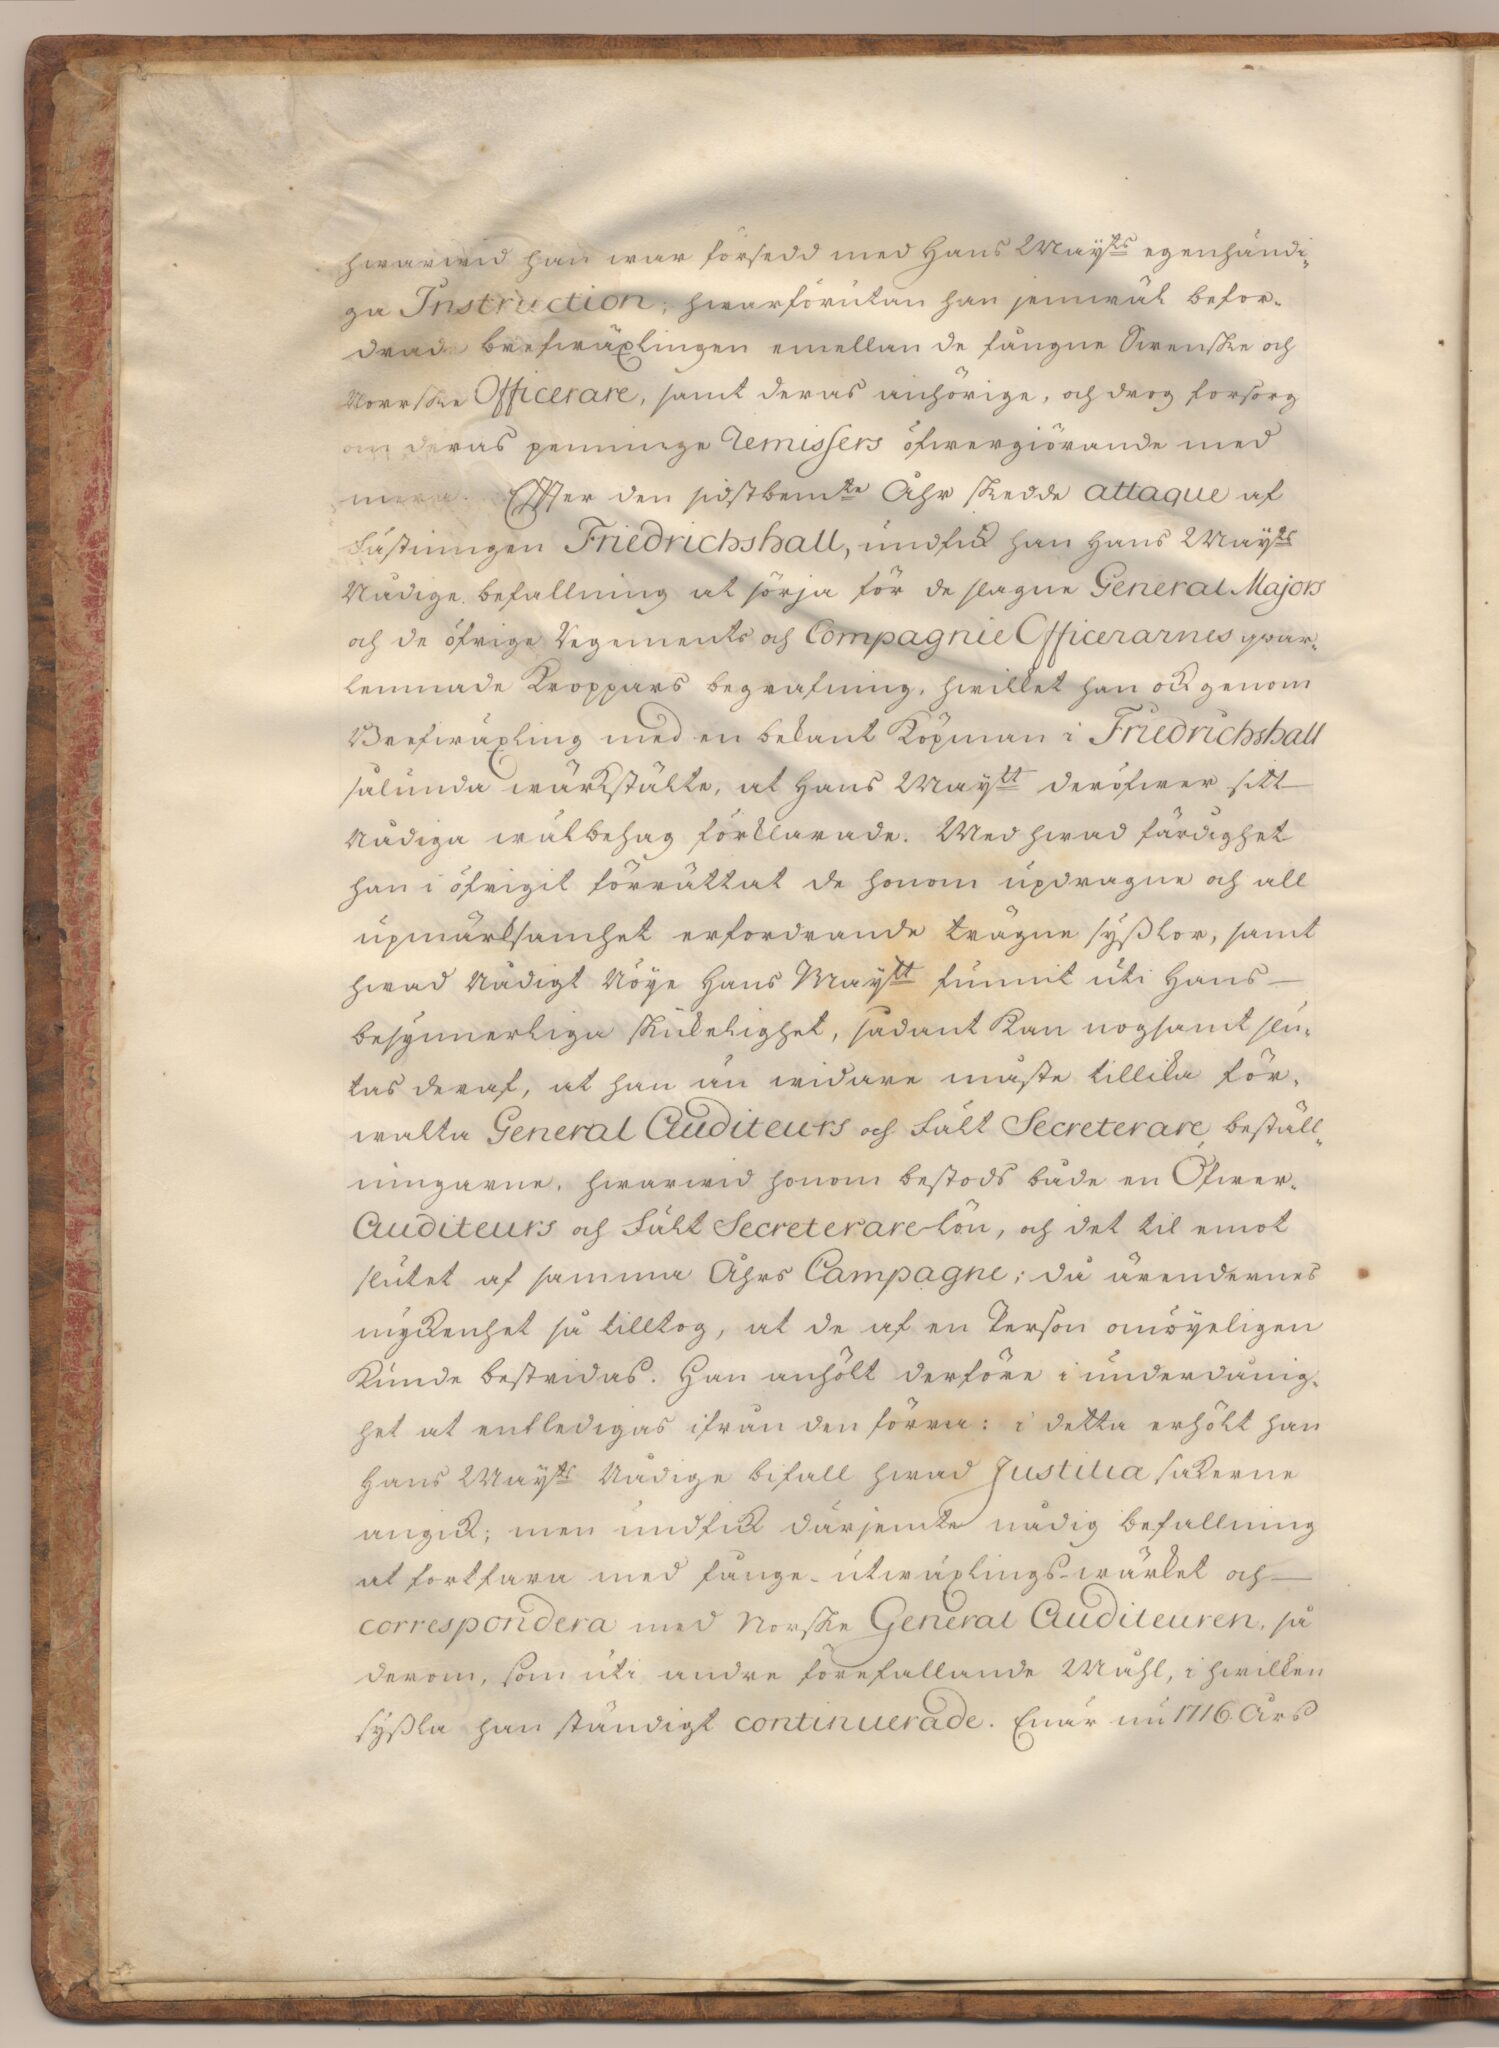 hwarwid han war försedd med Hans Mayts egenhändi„
ga Instruction; hwarförutan han jemwäl befor„
drade brefwäxlingen emellan de fångne Swenske och
Norrske Officerare, samt deras anhörige, och drog forsorg
om deras penninge remissers öfwergiörande med
mera. Effter den sidstbemte Åhr skedde attaque af
Fästningen Friedrichshall, undfick han Hans Mayts
Nådige befallning at sörja för de slagne General Majors
och de öfrige Regements och Compagnie Officerarnes qwar„
lemnade Kroppars begrafning, hwilket han ock genom
Brefwäxling med en bekant Köpman i Friedrichshall
sålunda wärkstälte, at Hans Maytt deröfwer sitt
Nådiga wälbehag förklarade. Med hwad färdighet
han i öfrigit förrättat de honom updragne och all
upmärksamhet erfordrande trägne syßlor, samt
hwad Nådigt Nöye Hans Maytt funnit uti Hans
besynnerliga skickelighet, sådant kan nogsamt slu„
tas deraf, at han än widare måste tillika för„
walta General Auditeurs och Fält Secreterare beställ„
ningarne, hwarwid honom bestods både en Öfwer„
Auditeurs och Fält Secreterare lön, och det til emot
slutet af samma Åhrs Campagne; då ärendernes
myckenhet så tilltog, at de af en Person omöyeligen
Kunde bestridas. Han anhölt derföre i underdånig„
het at entledigas ifrån den förra: i detta erhölt han
Hans Mayts Nådige bifall hwad Justitia sakerne
angick; men undfick därjemte nådig befallning
at fortfara med fånge-utwäxlings-wärket och
correspondera med Norske General Auditeuren, så
derom, som uti andre förefallande Måhl, i hwilken
syßla han ständigt continuerade. Enär nu 1716 Års